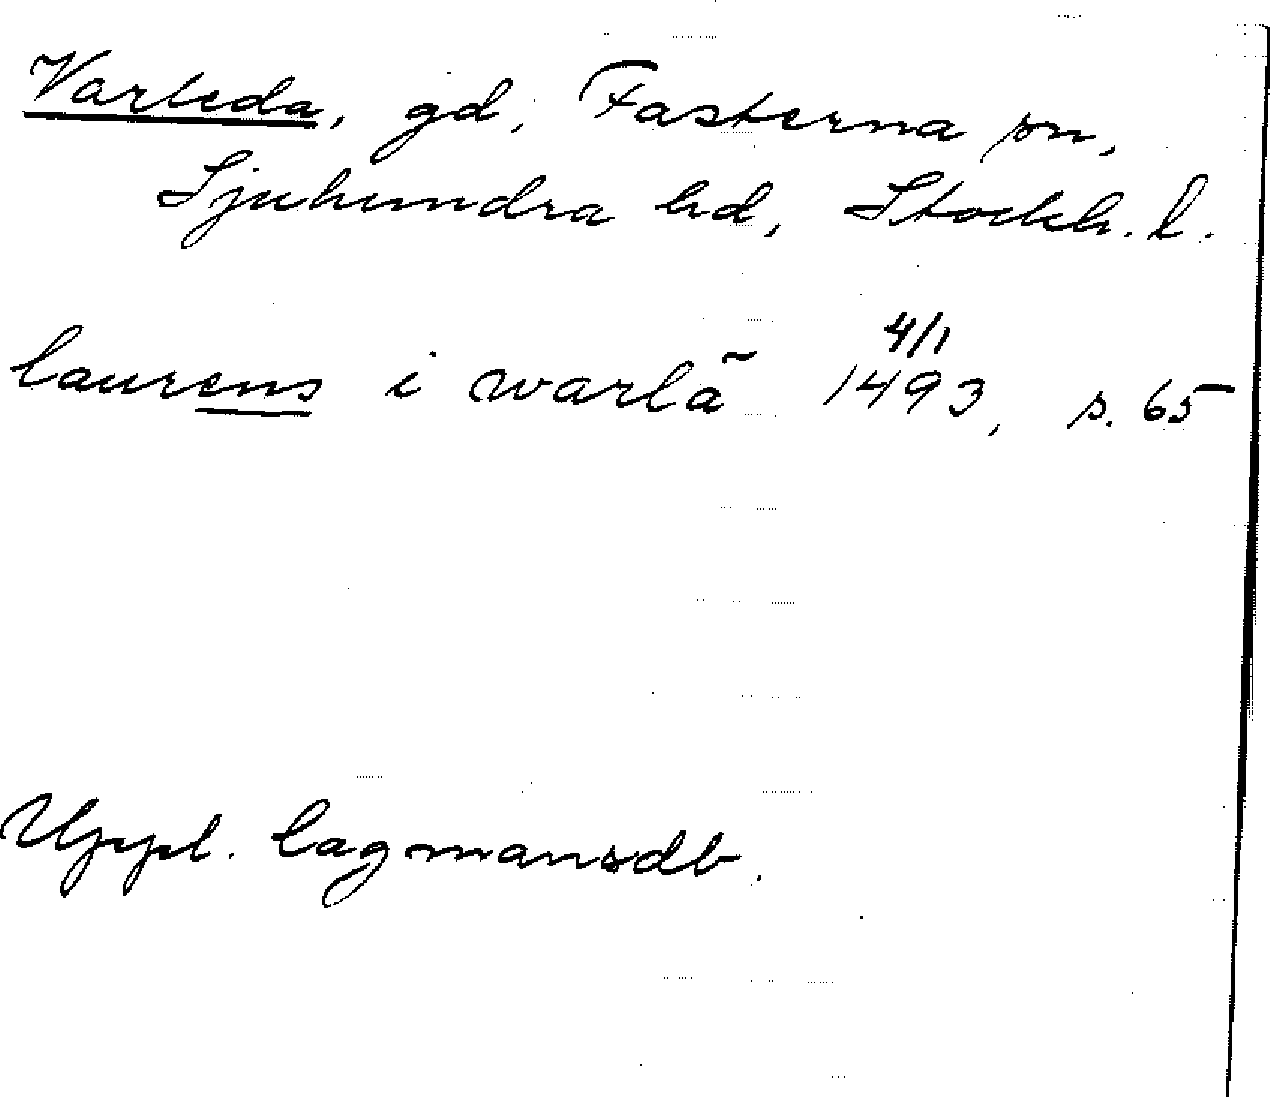 Varleda, gd, Fasterna sn,
Sjuhundra hd, Stockh. l.
4/1
laurens i warlã 1493, s. 65
Uppl. lagmansdb.